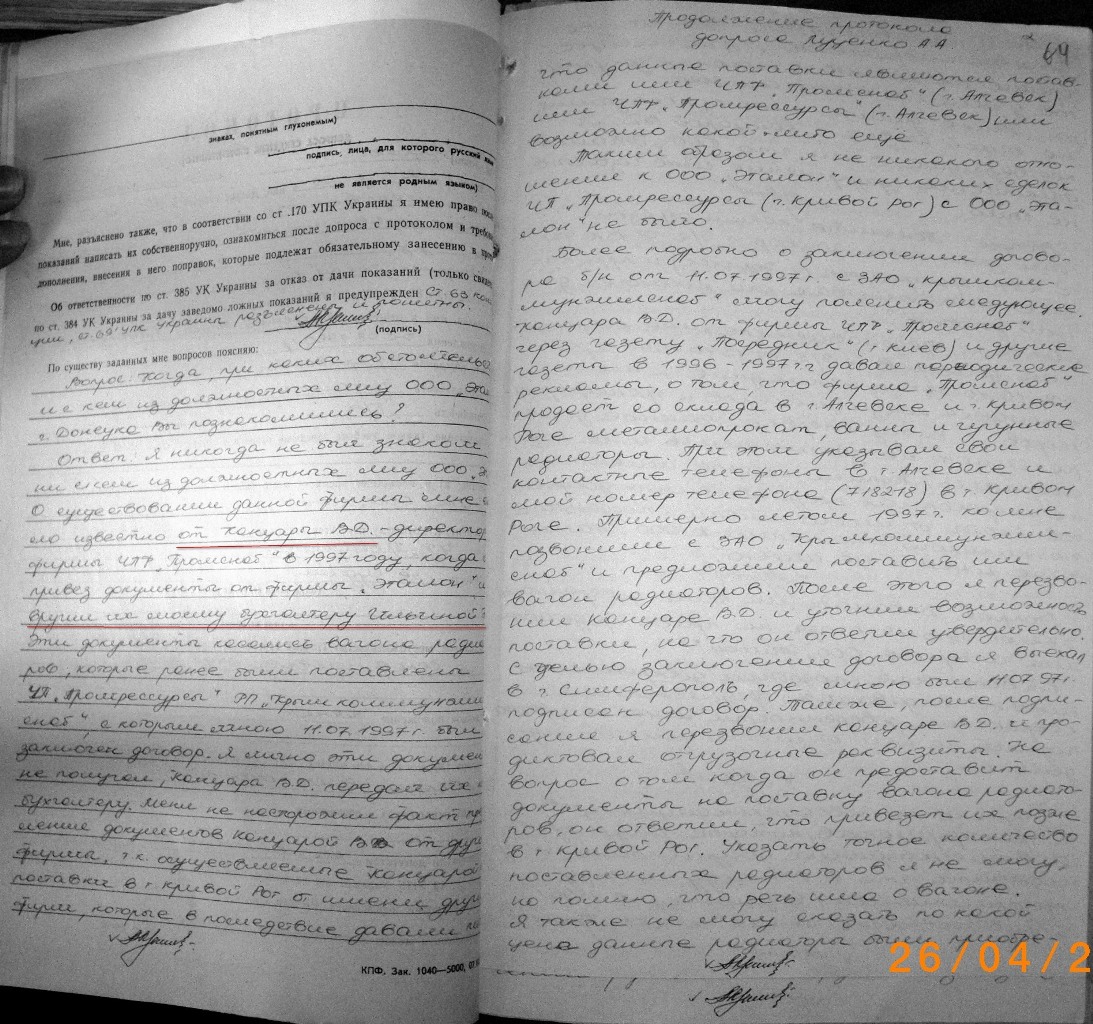 знаках, понятным глухонемым)
подпись, лица, для которого русский язык
не является родным языком)
Мне, разъяснено также, что в соответствии со ст .170 УПК Украины я имею право после
показаний написать их собственноручно, ознакомиться после допроса с протоколом и требо
дополнения, внесения в него поправок, которые подлежат обязательному занесению в про
Об ответственности по ст. 385 УК Украины за отказ от дачи показаний (только свиде
по ст. 384 УК Украины за дачу заведомо ложных показаний я предупрежден Ст. 63 кон
ции, ст. 69 УПК Украины разъяснены и понятны.
(подпись)
По существу заданных мне вопросов поясняю:
Вопрос: Когда, при каких обстоятельс
и с кем из должностных лиц ООО „Эта
г. Донецка Вы познакомились?
Ответ: Я никогда не был знаком
ни с кем из должностных лиц ООО „Э
О существовании данной фирмы мне с
ло известно от Канцары В.Д. - директор
фирмы ЧПФ „Промснаб" в 1997 году, когда
привез документы от фирмы „Эталон" и
вручил их моему бухгалтеру Ильиной
Эти документы касались вагона радиа
ров, которые ранее были поставлены
ЧП „Промрессурсы" РП „Крымкоммунжил
снаб", с которым мною 11.07.1997 г. был
заключен договор. Я лично эти докумен
не получал, Канцара В.Д. передал их
бухгалтеру. Меня не насторожил факт пр
ления документов Канцарой В.Д. от друг
фирмы, т.к. осуществленные Канцарой
поставки в г. Кривой Рог от имени друг
фирм, которые в последствие давали
КПФ. Зак. 1040—5000, 07.
Продолжение протокола
допроса Луценко А.А.
64
что данные поставки являются постав-
ками или ЧПФ „Промснаб" (г. Алчевск)
или ЧПФ „Промрессурсы" (г. Алчевск) или
возможно какой-либо ещё.
Таким образом я не никакого отно-
шение к ООО „Эталон" и никаких сделок
ЧП „Промрессурсы (г. Кривой Рог) с ООО „Эта-
лон" не было.
Более подробно о заключении догово-
ра б/н от 11.07.1997 г. с ЗАО „Крымком-
мунжилснаб" могу пояснить следующее.
Канцара В.Д. от фирмы ЧПФ „Промснаб"
через газету „Посредник" (г. Киев) и другие
газеты в 1996 - 1997 г.г. давал периодические
рекламы, о том, что фирма „Промснаб"
продает со склада в г. Алчевске и г. Кривом
Роге металлопрокат, ванны и чугунные
радиаторы. При этом указывал свои
контактные телефоны в г. Алчевске и
мой номер телефона (718218) в г. Кривом
Роге. Примерно летом 1997 г. ко мне
позвонили с ЗАО „Крымкоммунжил-
снаб" и предложили поставить им
вагон радиаторов. После этого я перезво-
нил Канцаре В.Д. и уточнил возможность
поставки, на что он ответил утвердительно.
С целью заключения договора я выехал
в г. Симферополь, где мною был 11.07.97 г.
подписан договор. Также, после подпи-
сания я перезвонил Канцаре В.Д. и про-
диктовал отгрузочные реквизиты. На
вопрос о том когда он предоставит
документы на поставку вагона радиато-
ров, он ответил, что привезет их позже
в г. Кривой Рог. Указать точное количество
поставленных радиаторов я не могу,
но помню, что речь шла о вагоне.
Я также не могу сказать по какой
цене данные радиаторы были приобре-
26/04/2